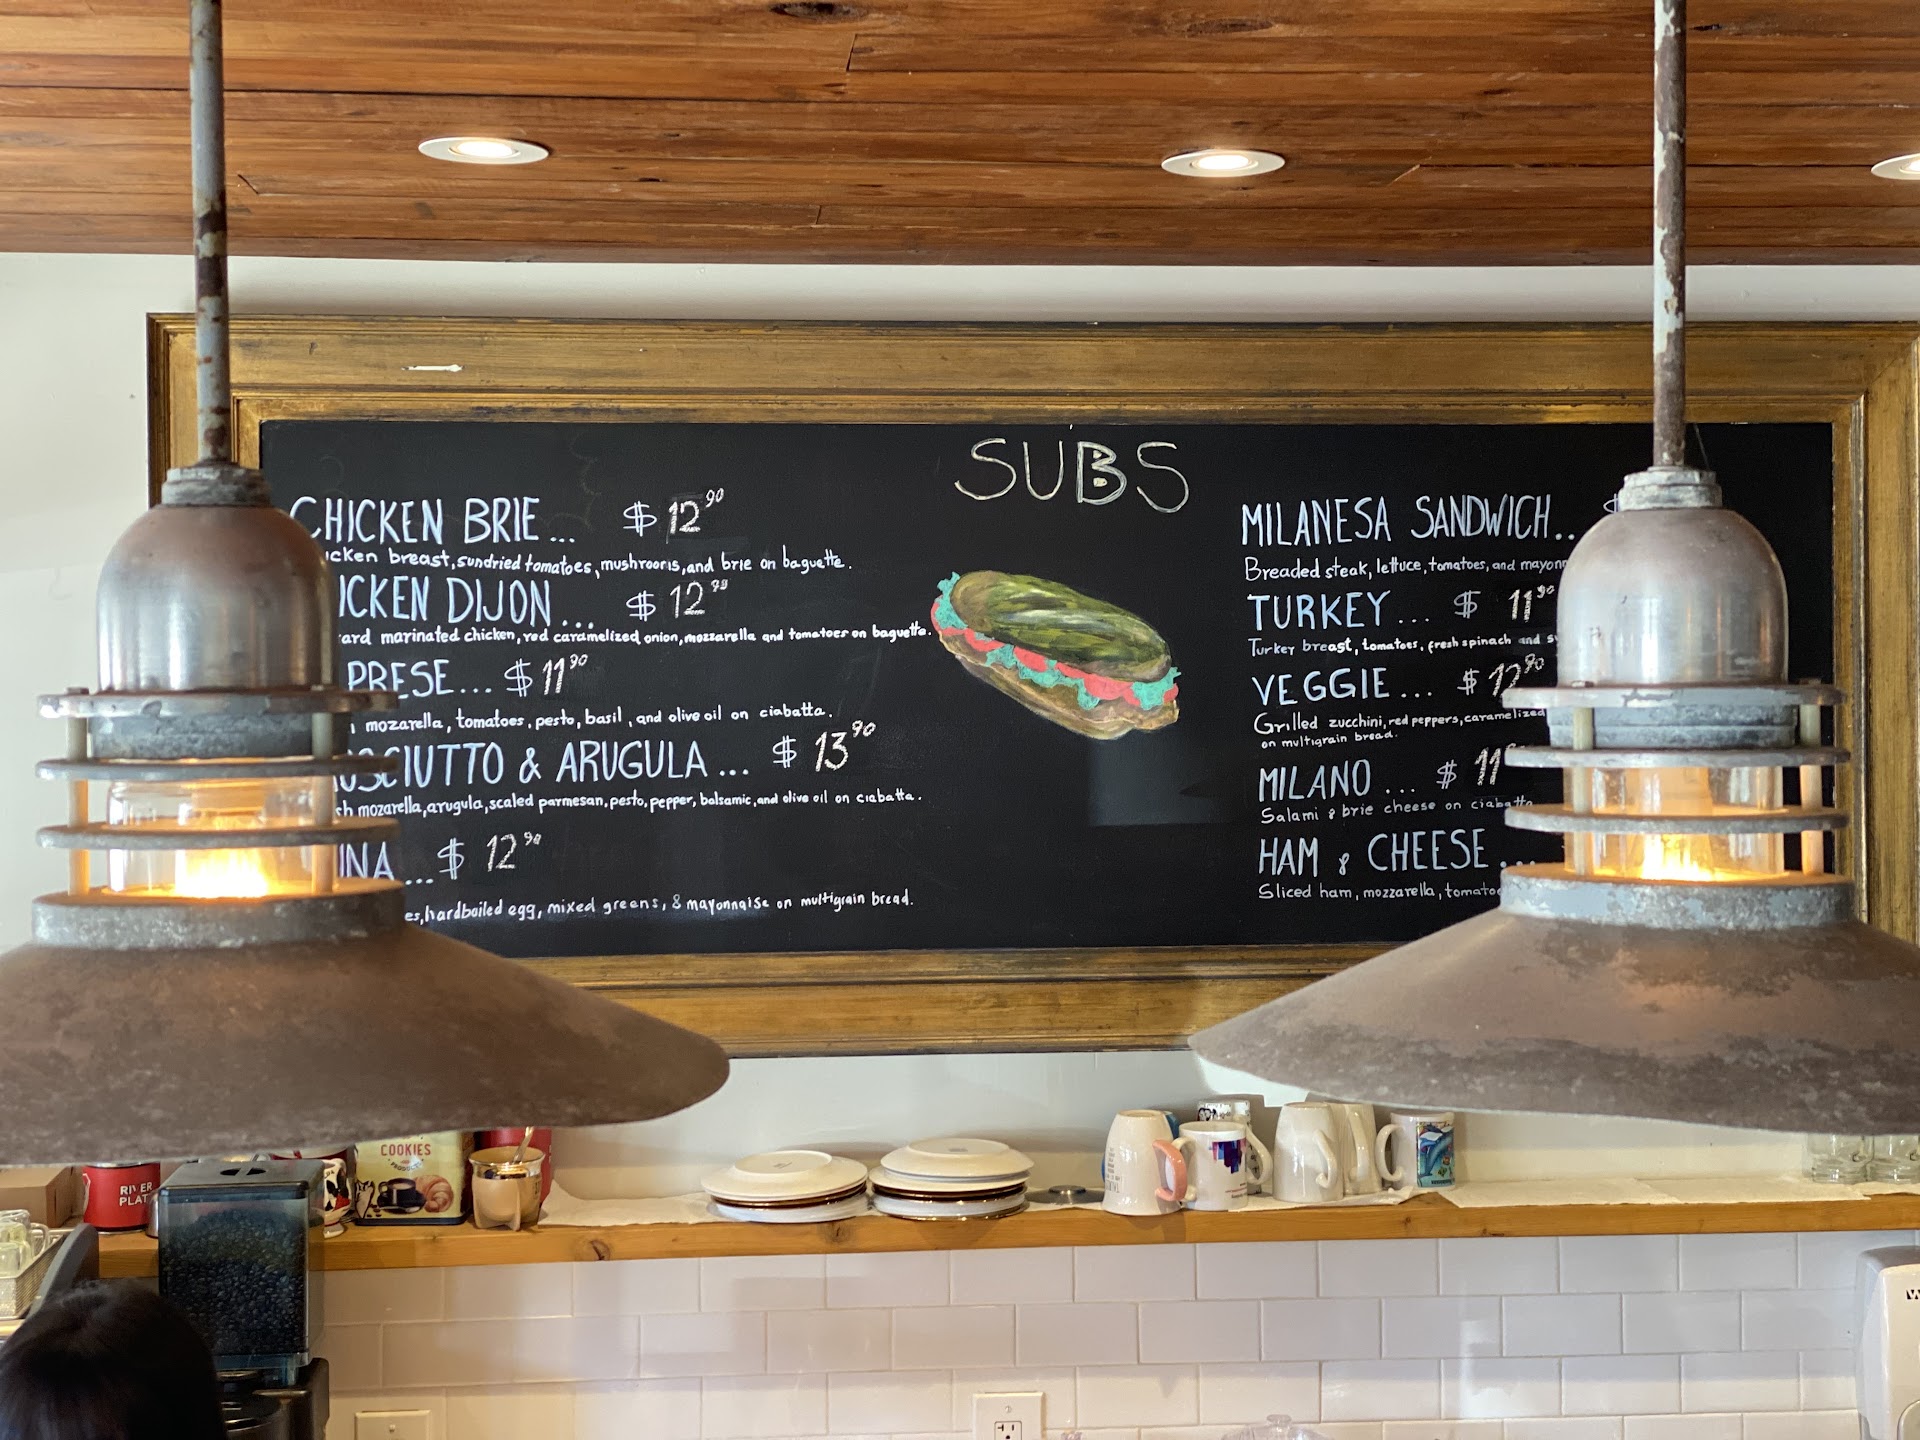 SUBS
CHICKEN BRIE... $12.90
breast, sundried tomatoes, mushrooms, and brie on baguette.
DIJON... $12
marinated chicken, red caramelized onion, mozzarella and tomatoes on baguette.
$11.90
mozarella, tomatoes, pesto, basil, and olive oil on ciabatta.
& ARUGULA... $13.90
mozarella, arugula, scaled parmesan, pesto, pepper, balsamic, and olive oil on ciabatta.
$12.90
hardboiled egg, mixed greens, & mayonnaise on multigrain bread.
MILANESA SANDWICH...
Breaded steak, lettuce, tomatoes, and
TURKEY... $11.90
Turkey breast, tomatoes, fresh spinach and
VEGGIE... $
Grilled zucchini, red peppers, caramelized
on multigrain bread.
MILANO... $11
Salami & brie cheese on ciabatta
HAM & CHEESE...
Sliced ham, mozzarella,
COOKIES
RIVER
PLAT